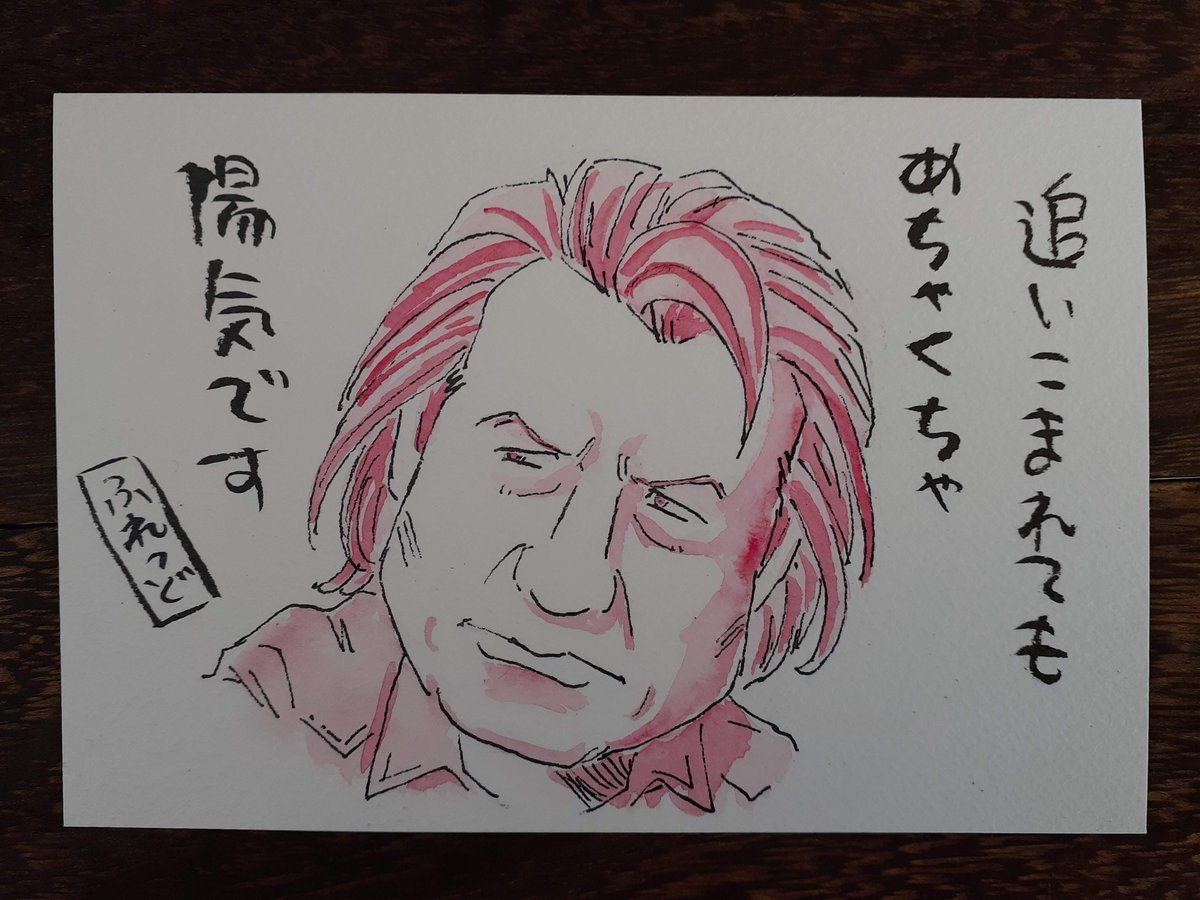 追いこまれても
めちゃくちゃ
陽気です
ふれっど